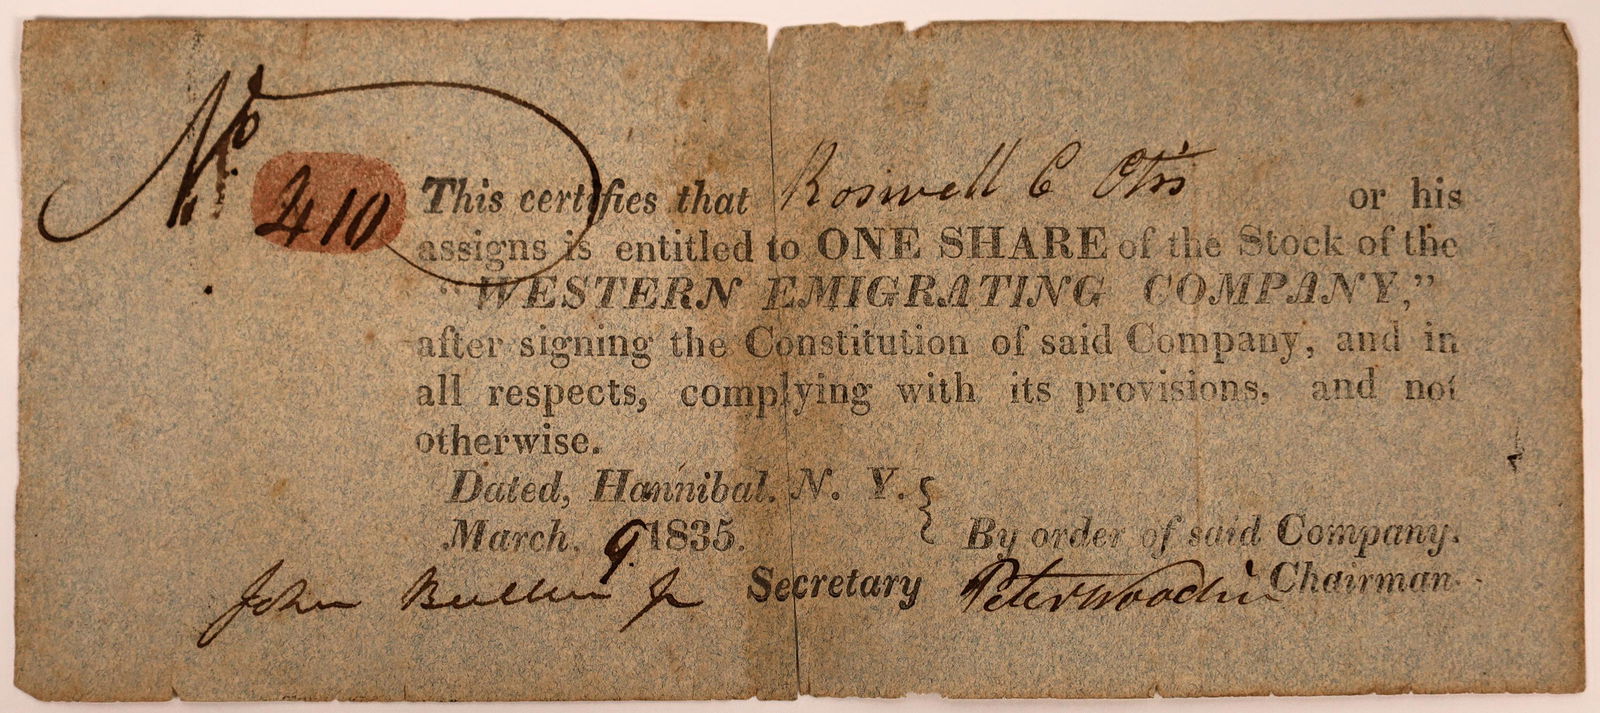 No. 410
This certifies that Roswell C Otis or his
assigns is entitled to ONE SHARE of the Stock of the
"WESTERN EMIGRATING COMPANY,"
after signing the Constitution of said Company, and in
all respects, complying with its provisions, and not
otherwise.
Dated, Hannibal, N. Y. }
March, 9. 1835. By order of said Company.
John Bullen Jr Secretary Peter Woodin Chairman.